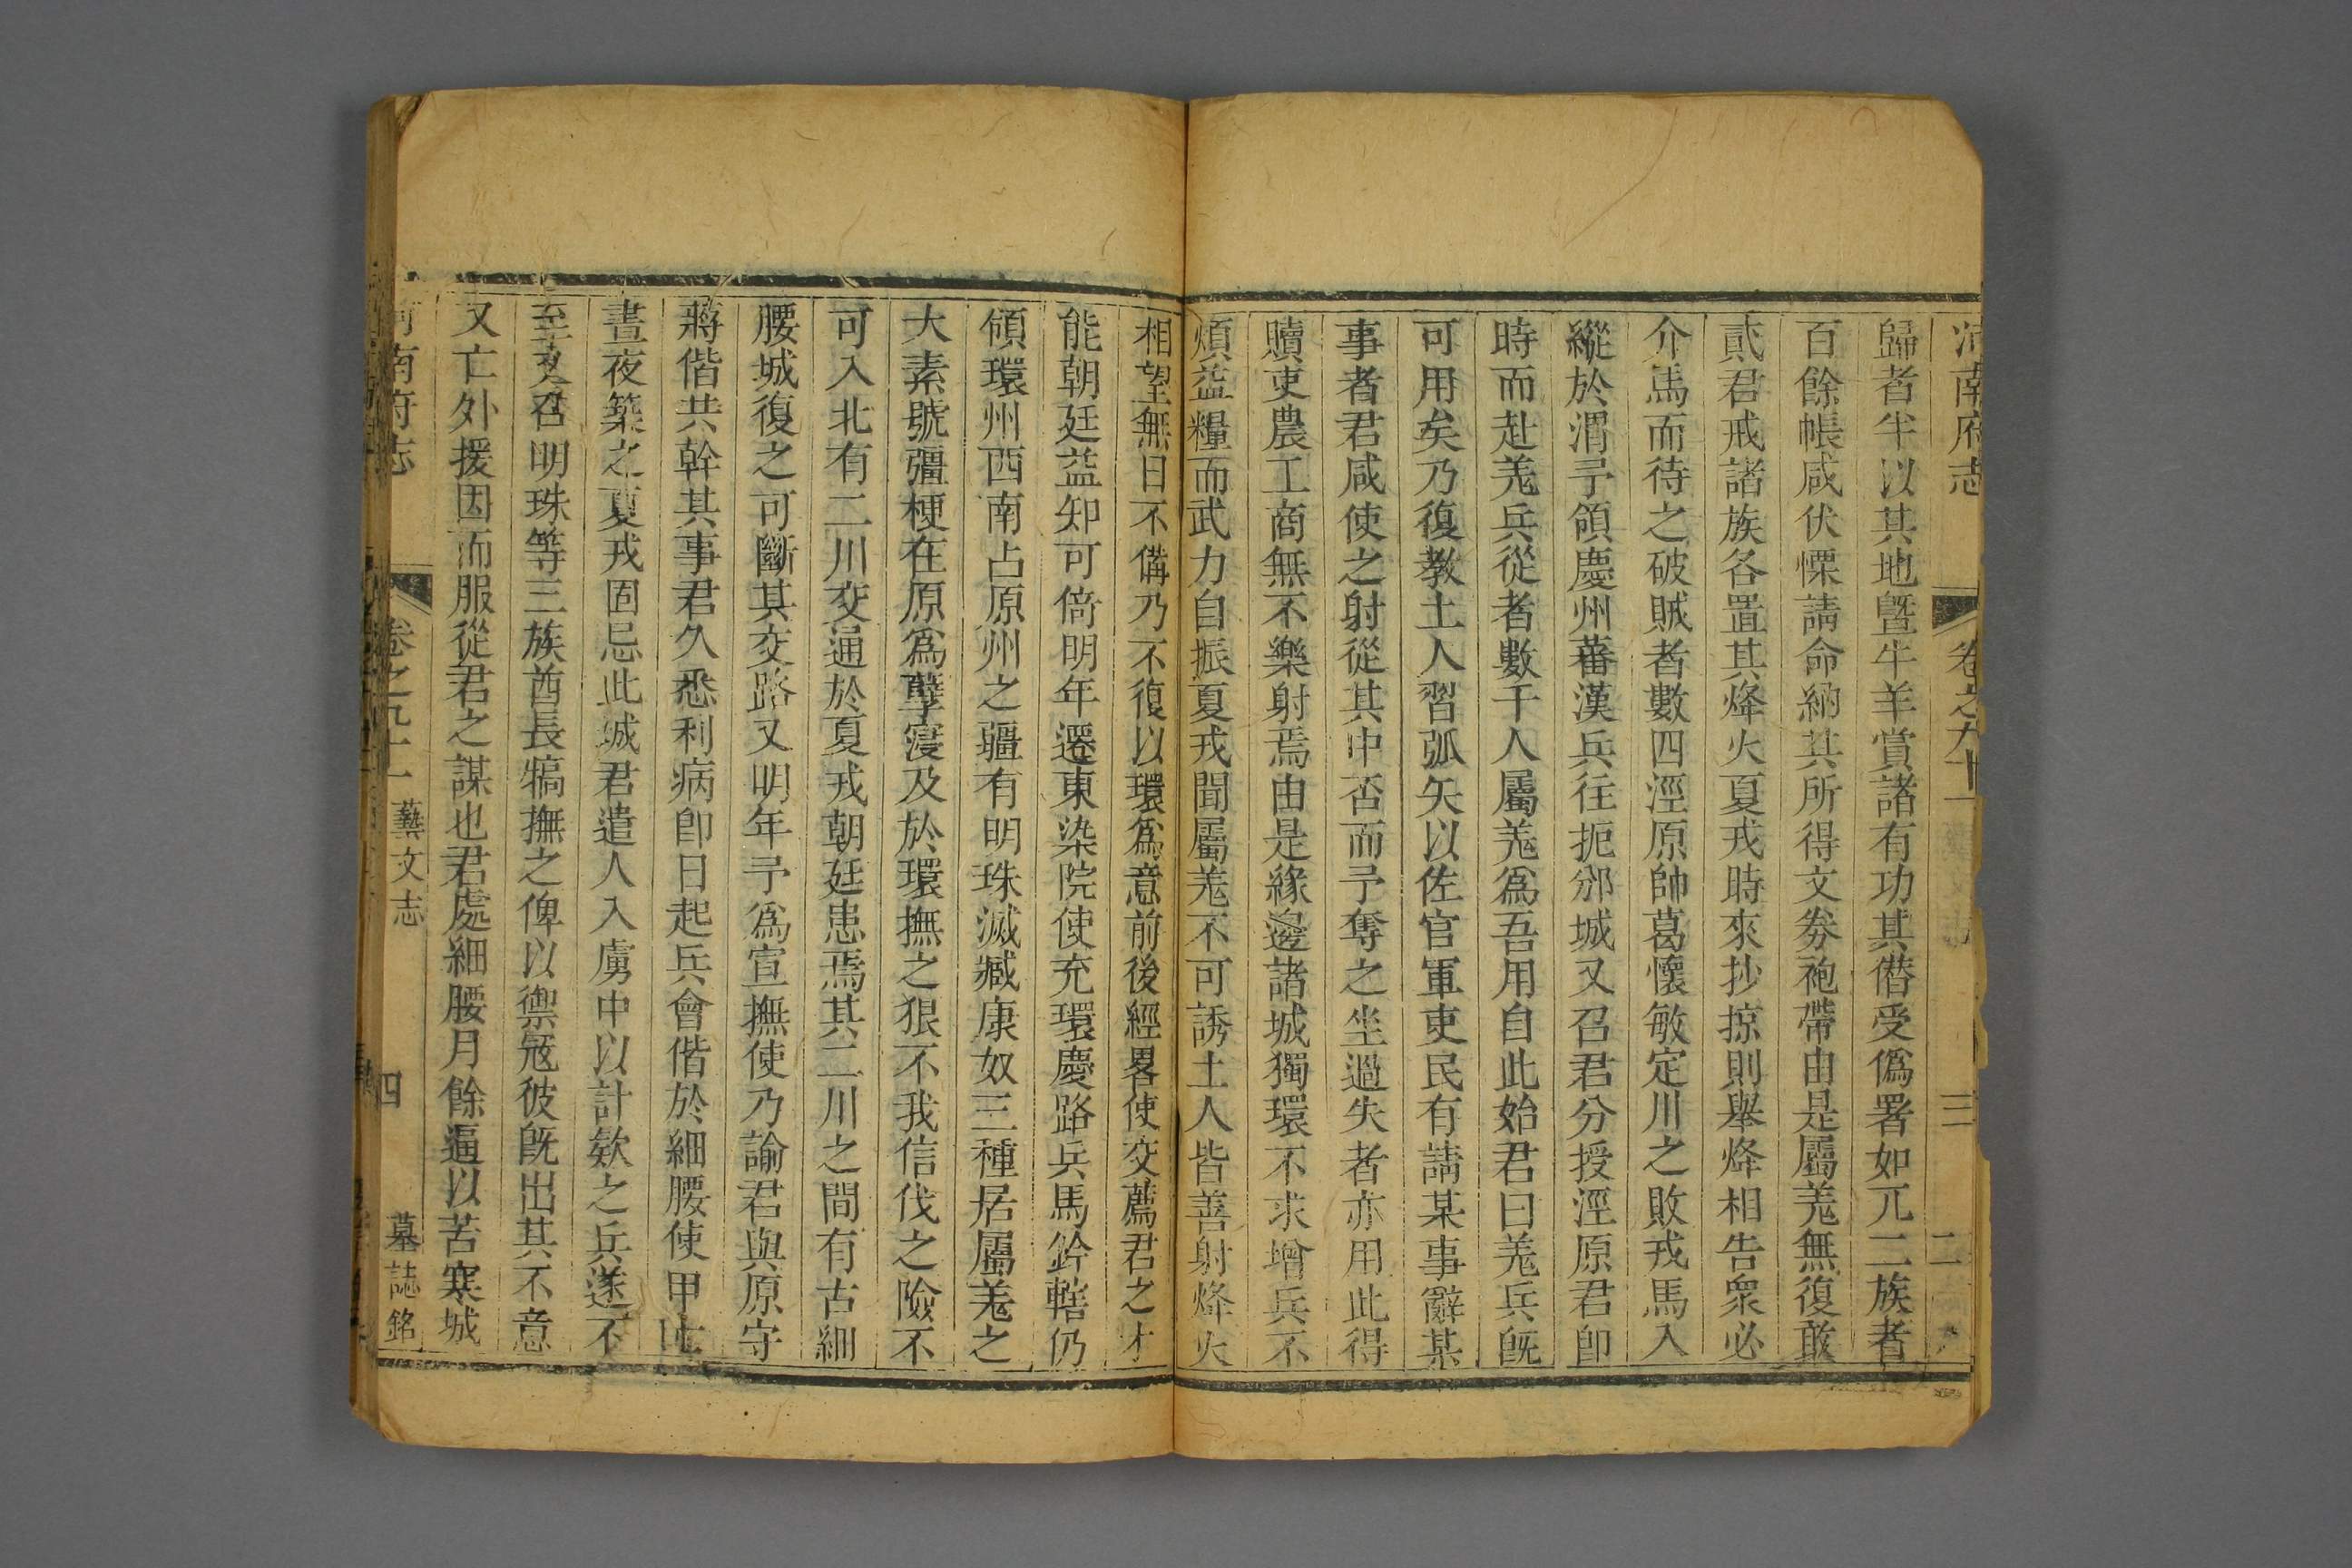 河南府志 卷之九十一 三
歸者半以其地曁牛羊賞諸有功其僣受僞署如兀二族者
百餘帳咸伏慄請命納其所得文券袍帶由是屬羌無復敢
貳君戒諸族各置其烽火夏戎時來抄掠則舉烽相告衆必
介馬而待之破賊者數四涇原帥葛懷敏定川之敗戎馬入
縱於渭予領慶州蕃漢兵往扼邠城又召君分授涇原君卽
時而赴羌兵從者數千人屬羌爲吾用自此始君曰羌兵旣
可用矣乃復敎土人習弧矢以佐官軍吏民有請某事辭某
事者君咸使之射從其中否而予奪之坐過失者亦用此得
贖吏農工商無不樂射焉由是緣邊諸城獨環不求增兵不
煩益糧而武力自振夏戎聞屬羌不可誘土人皆善射烽火
相望無日不備乃不復以環爲意前後經畧使交薦君之才
能朝廷益知可倚明年遷東染院使充環慶路兵馬鈐轄仍
領環州西南占原州之疆有明珠滅臧康奴三種居屬羌之
大素號彊梗在原爲孽寖及於環撫之狠不我信伐之險不
可入北有二川交通於夏戎朝廷患焉其二川之間有古細
腰城復之可斷其交路又明年予爲宣撫使乃諭君與原守
蔣偕共幹其事君久悉利病卽日起兵會偕於細腰使甲士
晝夜築之夏戎固忌此城君遣人入虜中以計欵之兵遂不
至又召明珠等三族酋長犒撫之俾以禦冦彼旣出其不意
又亡外援因而服從君之謀也君處細腰月餘逼以苦寒城
河南府志 卷之九十一 藝文志 四 墓誌銘